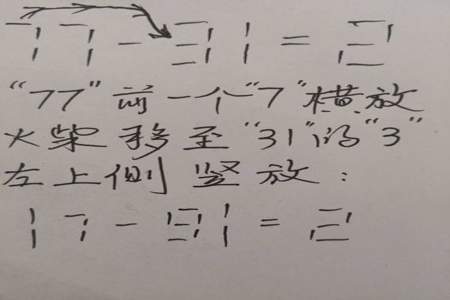 77-31=2
“77”前一个“7”横放
火柴移至“31”的“3”
左上侧竖放:
17-91=2